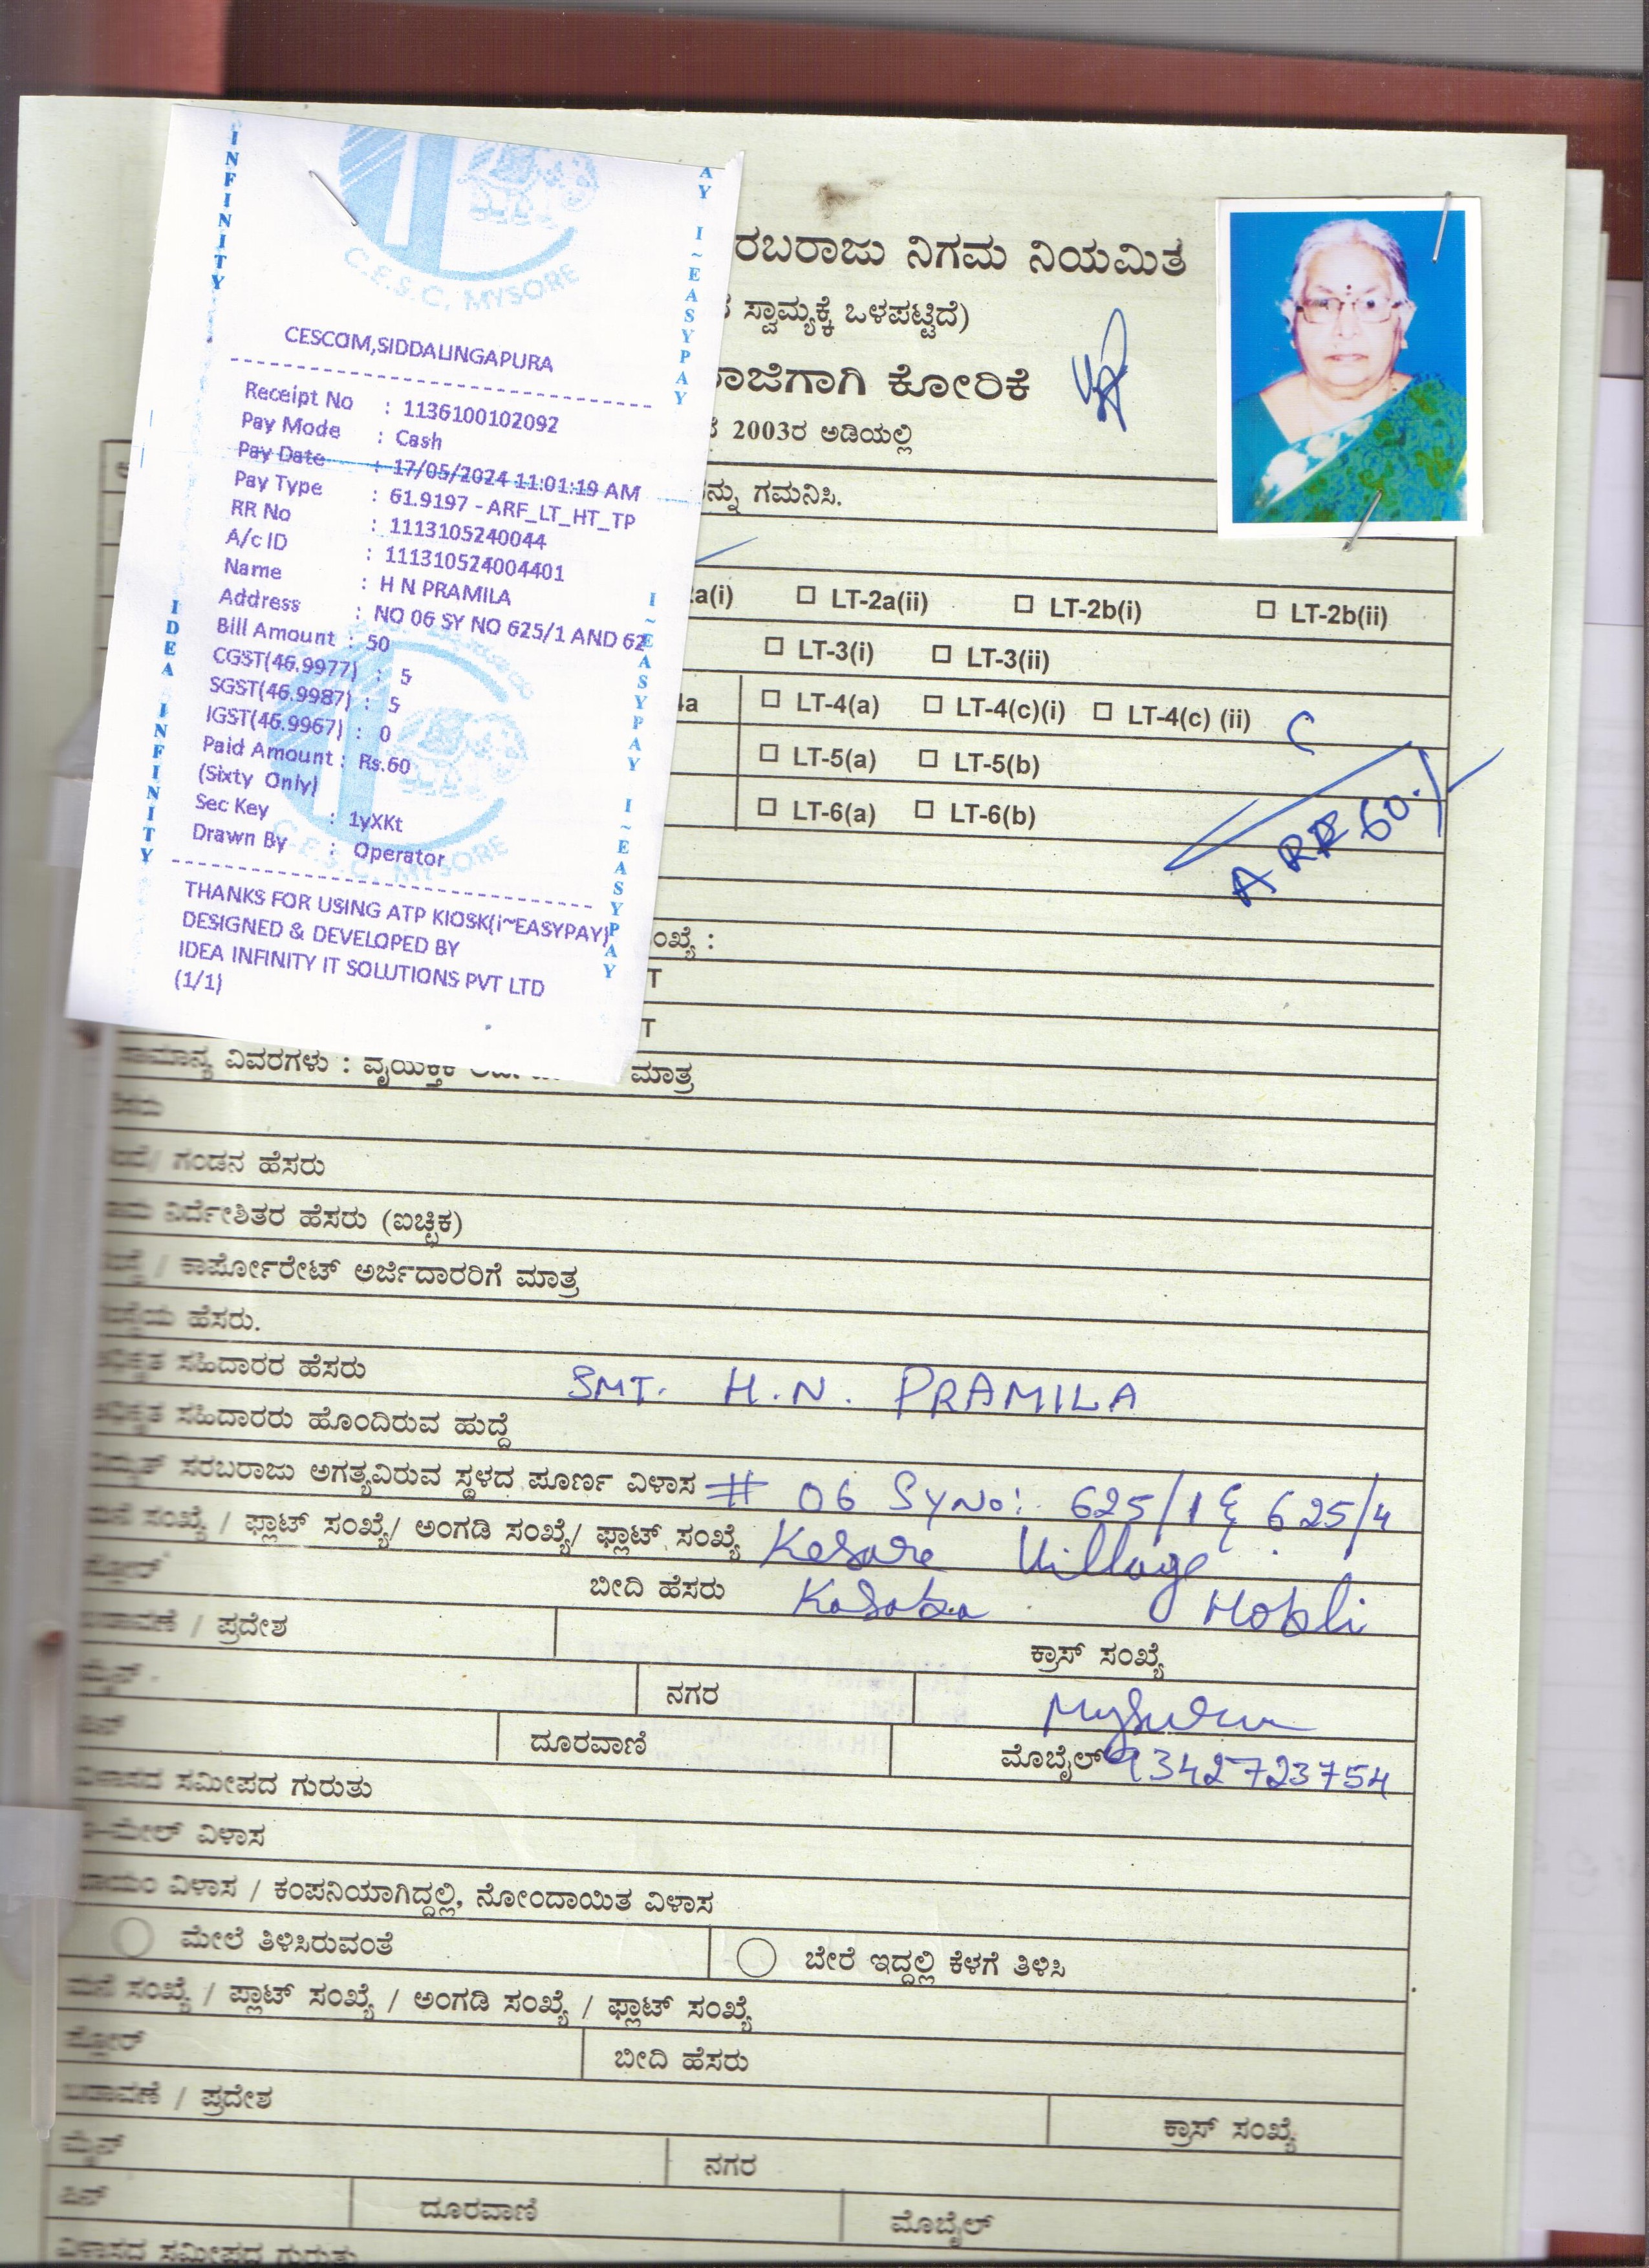 INFINITY
AY I~EASYPAY
C.E.S.C, MYSORE
CESCOM,SIDDALINGAPURA
Receipt No : 1136100102092
Pay Mode : Cash
Pay Date : 17/05/2024 11:01:19 AM
Pay Type : 61.9197 - ARF_LT_HT_TP
RR No : 1113105240044
A/c ID : 111310524004401
Name : H N PRAMILA
Address : NO 06 SY NO 625/1 AND 62
Bill Amount : 50
CGST(46.9977) : 5
SGST(46.9987) : 5
IGST(46.9967) : 0
Paid Amount : Rs.60
(Sixty Only)
Sec Key : 1yXKt
Drawn By : Operator
C.E.S.C, MYSORE
THANKS FOR USING ATP KIOSK(i~EASYPAY)
DESIGNED & DEVELOPED BY
IDEA INFINITY IT SOLUTIONS PVT LTD
(1/1)
IDEA INFINITY
I~EASYPAY I~EASYPAY
ರಬರಾಜು ನಿಗಮ ನಿಯಮಿತ
ಸ್ವಾಮ್ಯಕ್ಕೆ ಒಳಪಟ್ಟಿದೆ)
ರಾಜಿಗಾಗಿ ಕೋರಿಕೆ
2003ರ ಅಡಿಯಲ್ಲಿ
ನ್ನು ಗಮನಿಸಿ.
a(i) LT-2a(ii) LT-2b(i) LT-2b(ii)
LT-3(i) LT-3(ii)
4a LT-4(a) LT-4(c)(i) LT-4(c) (ii)
LT-5(a) LT-5(b)
LT-6(a) LT-6(b)
ARF 60./-
ಂಖ್ಯೆ :
T
T
ಸಾಮಾನ್ಯ ವಿವರಗಳು : ವೈಯಕ್ತಿಕ ಮಾತ್ರ
ಹೆಸರು
ತಂದೆ/ ಗಂಡನ ಹೆಸರು
ನಿರ್ದೇಶಿತರ ಹೆಸರು (ಐಚ್ಛಿಕ)
ಸಂಸ್ಥೆ / ಕಾರ್ಪೋರೇಟ್ ಅರ್ಜಿದಾರರಿಗೆ ಮಾತ್ರ
ಸಂಸ್ಥೆಯ ಹೆಸರು.
ಅಧಿಕೃತ ಸಹಿದಾರರ ಹೆಸರು SMT. H.N. PRAMILA
ಅಧಿಕೃತ ಸಹಿದಾರರು ಹೊಂದಿರುವ ಹುದ್ದೆ
ವಿದ್ಯುತ್ ಸರಬರಾಜು ಅಗತ್ಯವಿರುವ ಸ್ಥಳದ ಪೂರ್ಣ ವಿಳಾಸ # 06 SYNo: 625/1 & 625/4
ಮನೆ ಸಂಖ್ಯೆ / ಫ್ಲಾಟ್ ಸಂಖ್ಯೆ/ ಅಂಗಡಿ ಸಂಖ್ಯೆ/ ಫ್ಲಾಟ್ ಸಂಖ್ಯೆ Kesare Village
ಫ್ಲೋರ್ ಬೀದಿ ಹೆಸರು Kasaba Hobli
ಬಡಾವಣೆ / ಪ್ರದೇಶ ಕ್ರಾಸ್ ಸಂಖ್ಯೆ
ಮೈನ್ ನಗರ Mysuru
ಪಿನ್ ದೂರವಾಣಿ ಮೊಬೈಲ್ 9342723754
ವಿಳಾಸದ ಸಮೀಪದ ಗುರುತು
ಇ-ಮೇಲ್ ವಿಳಾಸ
ಖಾಯಂ ವಿಳಾಸ / ಕಂಪನಿಯಾಗಿದ್ದಲ್ಲಿ, ನೋಂದಾಯಿತ ವಿಳಾಸ
ಮೇಲೆ ತಿಳಿಸಿರುವಂತೆ ಬೇರೆ ಇದ್ದಲ್ಲಿ ಕೆಳಗೆ ತಿಳಿಸಿ
ಮನೆ ಸಂಖ್ಯೆ / ಪ್ಲಾಟ್ ಸಂಖ್ಯೆ / ಅಂಗಡಿ ಸಂಖ್ಯೆ / ಫ್ಲಾಟ್ ಸಂಖ್ಯೆ
ಫ್ಲೋರ್ ಬೀದಿ ಹೆಸರು
ಬಡಾವಣೆ / ಪ್ರದೇಶ ಕ್ರಾಸ್ ಸಂಖ್ಯೆ
ಮೈನ್ ನಗರ
ಪಿನ್ ದೂರವಾಣಿ ಮೊಬೈಲ್
ವಿಳಾಸದ ಸಮೀಪದ ಗುರುತು